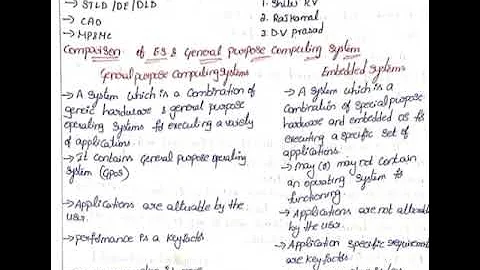 → STLD/DE/DLD
→ CAO
→ MP&MC
1. Shibu KV
2. RajKamal
3. D.V Prasad
Comparison of ES & General purpose Computing System
General purpose Computing Systems
→ A System which is a Combination of
generic hardware & general purpose
operating Systems for executing a variety
of applications.
→ It contains general purpose operating
System (GPOS)
→ Applications are alterable by the
user.
→ performance is a key factor
Embedded Systems
→ A System which is a
combination of special purpose
hardware and embedded OS for
executing a specific set of
applications.
→ may (or) may not contain
an operating System for
functioning.
→ Applications are not alterable
by the user.
→ Application specific requirement
are key factors.